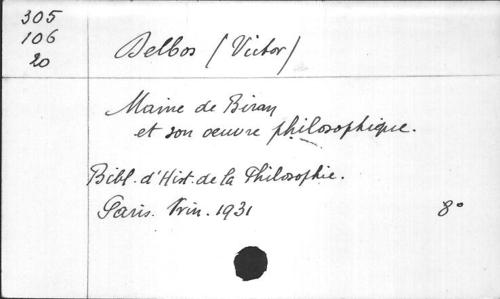 305
106
20
Delbos (Victor)
Maine de Biran
et son oeuvre philosophique.
Bibl. d'Hist. de la Philosophie.
Paris. Vrin. 1931 8°